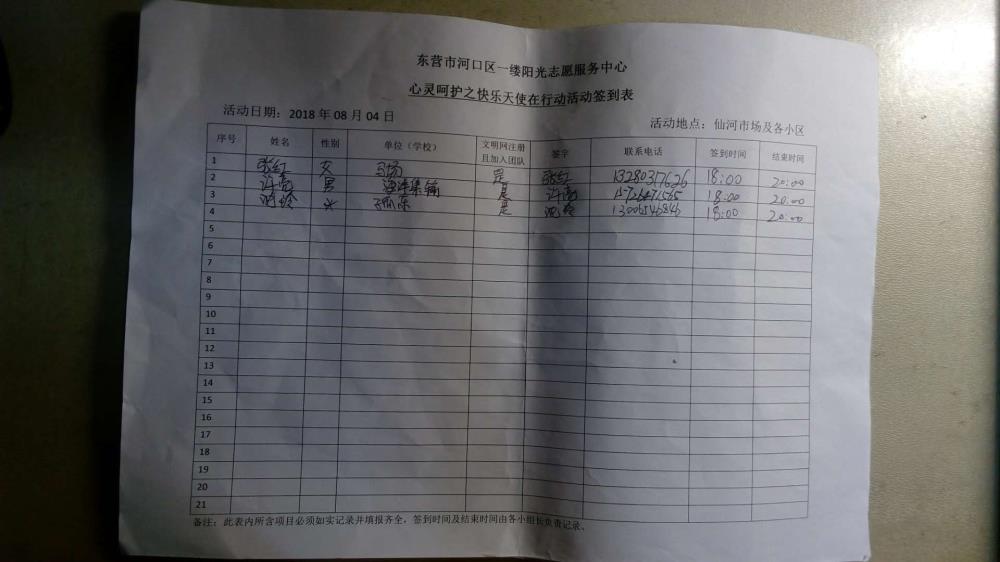 东营市河口区一缕阳光志愿服务中心
心灵呵护之快乐天使在行动活动签到表
活动日期：2018 年 08 月 04 日 活动地点：仙河市场及各小区
序号 姓名 性别 单位（学校） 文明网注册且加入团队 签字 联系电话 签到时间 结束时间
1 张红 女 马场 是 张红 13280317626 18:00 20:00
2 许亮 男 海洋集输 是 许亮 18:00 20:00
3 是 18:00 20:00
4
5
6
7
8
9
10
11
12
13
14
15
16
17
18
19
20
21
备注：此表内所含项目必须如实记录并填报齐全，签到时间及结束时间由各小组长负责记录、